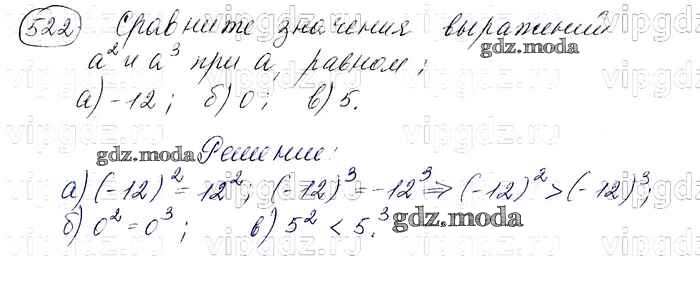 522) Сравните значения выражений
a² и a³ при a, равном;
а) -12; б) 0; в) 5.
Решение:
gdz.moda
а) (-12)² = 12²; (-12)³ = -12³ ⇒ (-12)² > (-12)³;
б) 0² = 0³; в) 5² < 5.³
gdz.moda